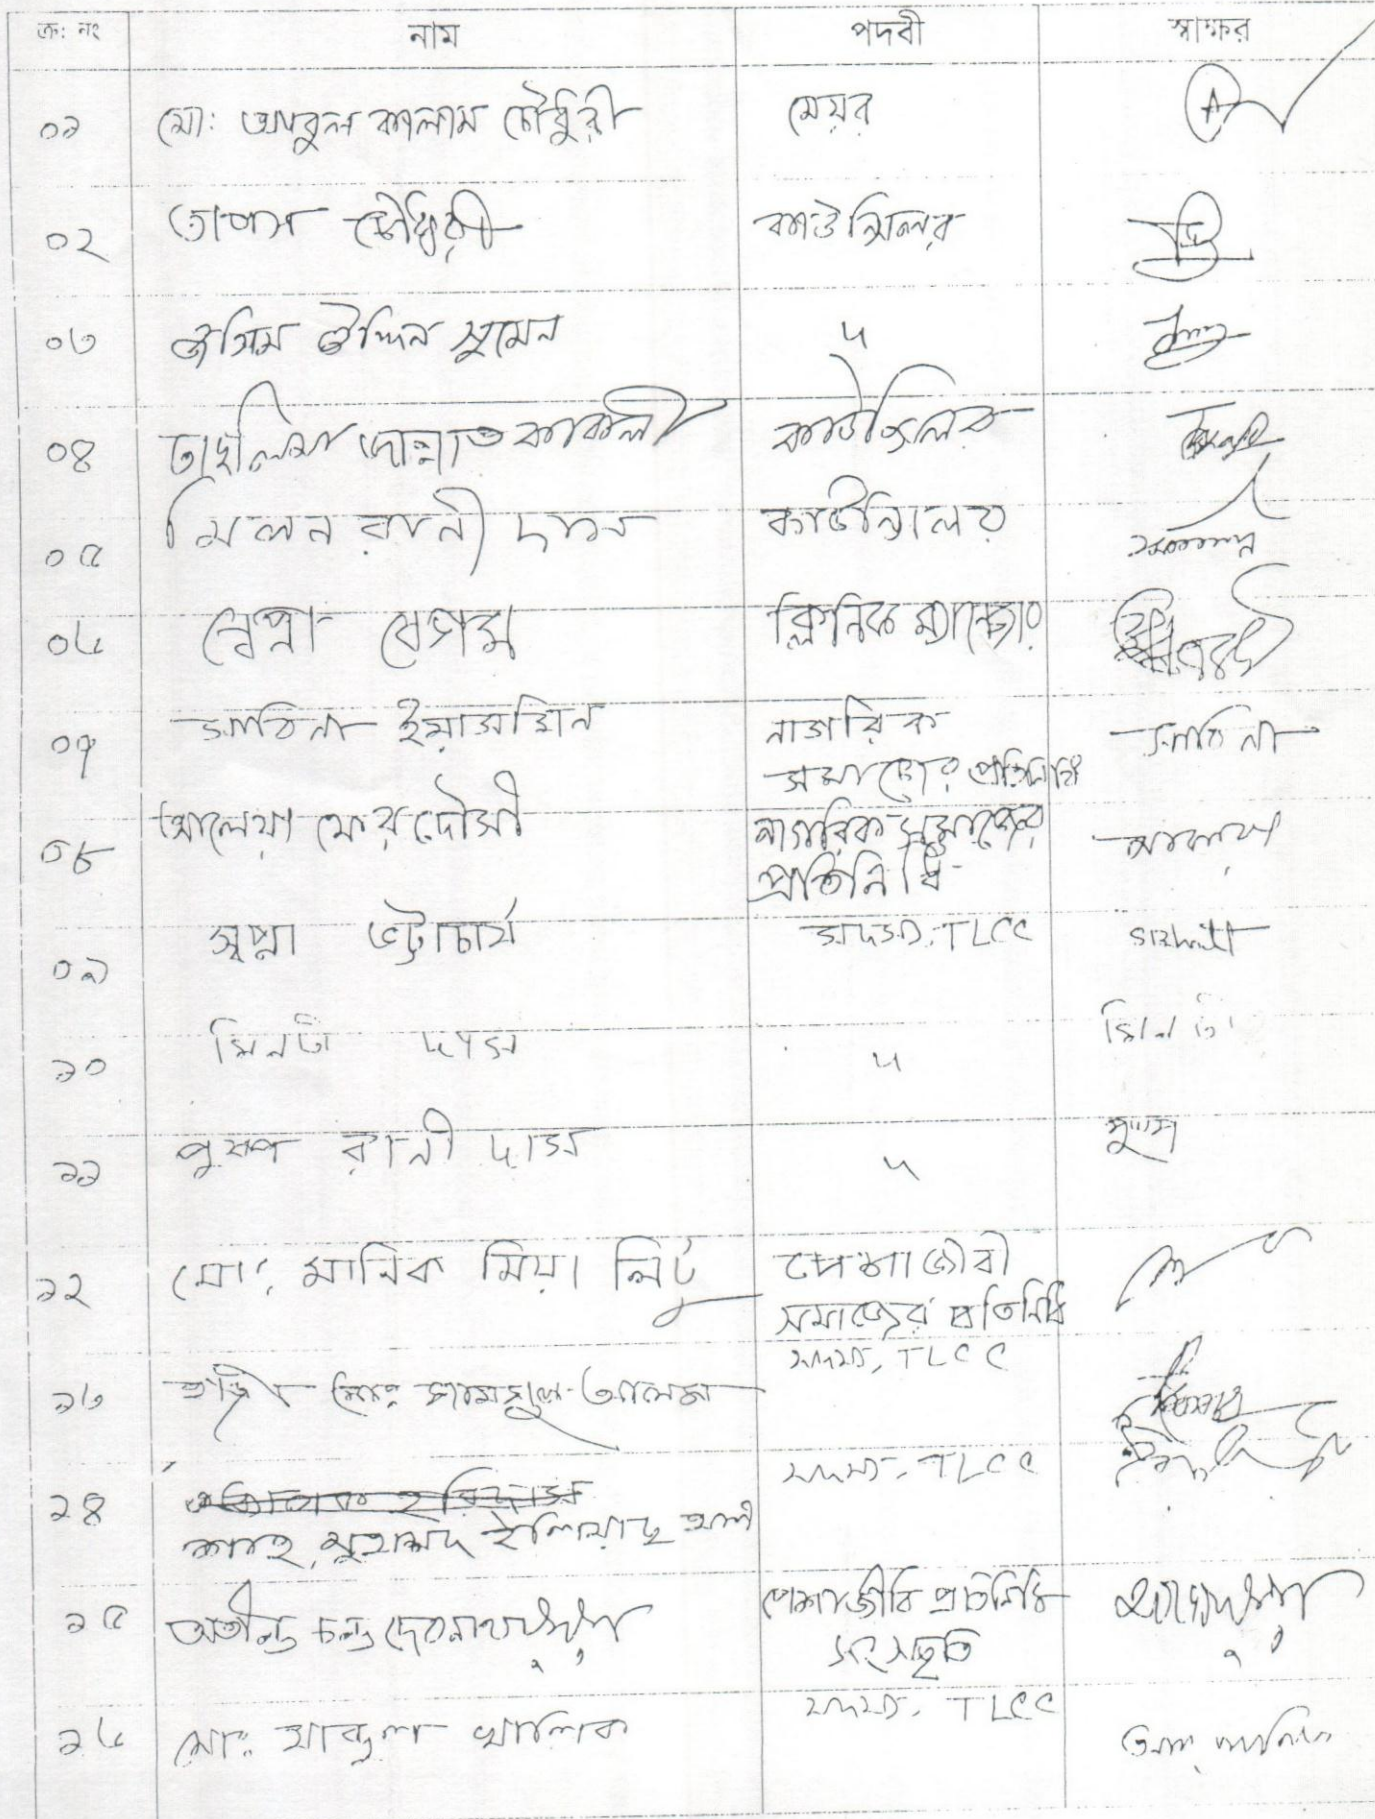 ক্র: নং নাম পদবী স্বাক্ষর
০১ মো: আবুল কালাম চৌধুরী মেয়র
০২ তাপস চৌধুরী কাউন্সিলর
০৩ জসিম উদ্দিন সুমেন ৸
০৪ তাছলিমা জান্নাত কাকলী কাউন্সিলর
০৫ মিলন রানী দাস কাউন্সিলর
০৬ স্বপ্না বেগম ক্লিনিক ম্যানেজার
০৭ সাবিনা ইয়াসমিন নাগরিক সাবিনা
সমাজের প্রতিনিধি
০৮ আলেয়া ফেরদৌসী নাগরিক সমাজের
প্রতিনিধি
০৯ স্বপ্না ভট্টাচার্য সদস্য, TLCC
১০ মিনতী দাস ৸ মিনতী
১১ পুষ্প রানী দাস ৸ পুষ্প
১২ মো: মানিক মিয়া লিটু পেশাজীবী
সমাজের প্রতিনিধি
১৩ হাজী মোঃ শামসুল আলম সদস্য, TLCC
১৪ সদস্য, TLCC
শাহ্ মুহাম্মদ ইলিয়াছ আলী
১৫ অতীন্দ্র চন্দ্র দেবনাথ পেশাজীবি প্রতিনিধি
সংস্কৃতি
১৬ মো: আব্দুল খালিক সদস্য, TLCC